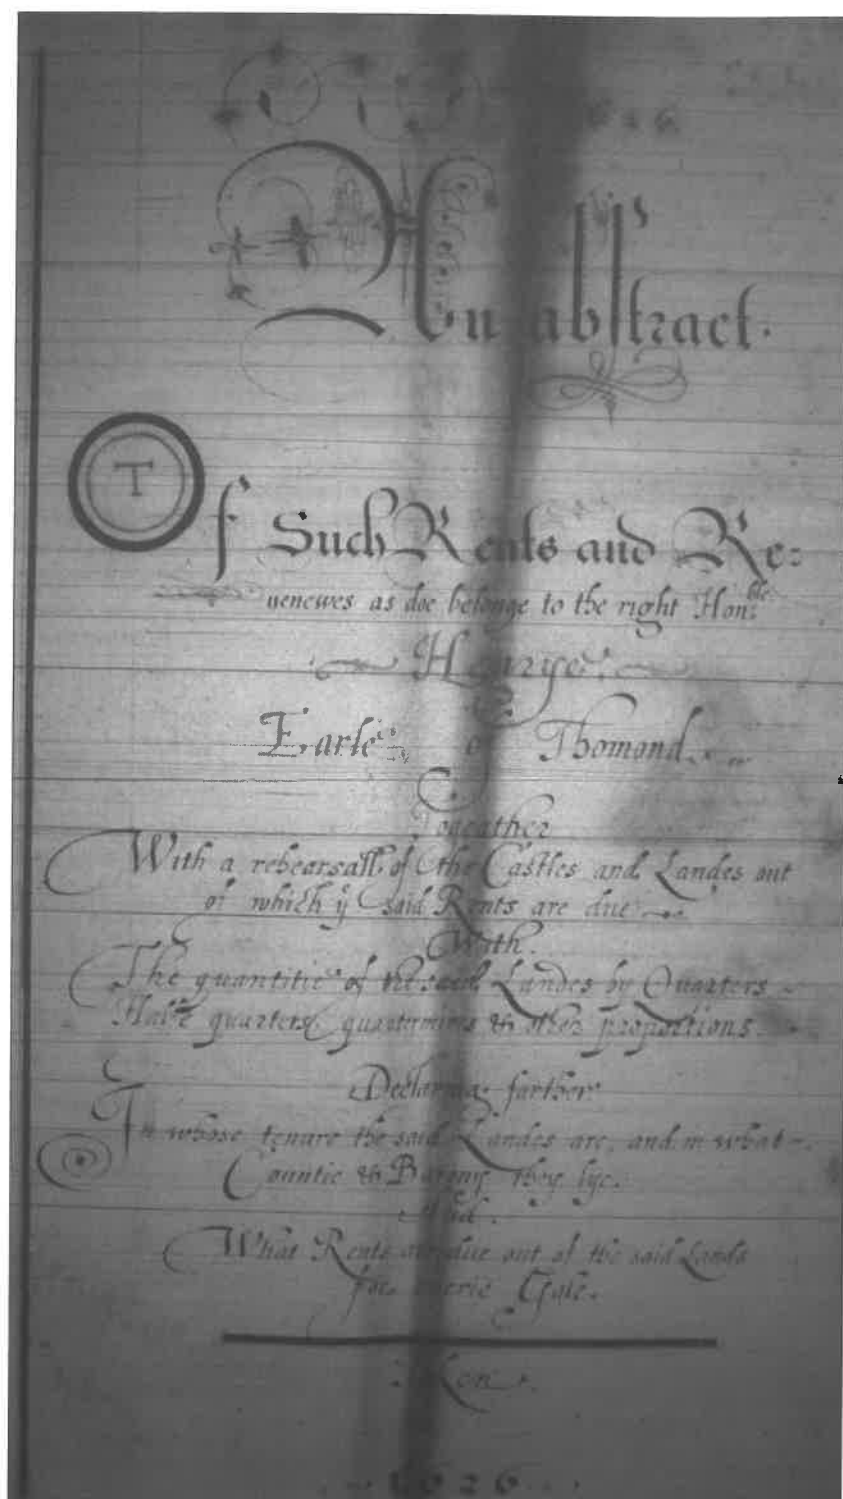 An abstract.
T
Of Such Rents and Re=
uenewes as doe belonge to the right Hon:ble
Henrye
Earle of Thomond
Togeather
With a rehearsall of the Castles and Landes out
of which yͤ said Rents are due
With.
The quantitie of the said Landes by Quarters
Halfe quarters, quartermires & other proportions.
Declaring farther
In whose tenure the said Landes are, and in what
Countie & Barony they lye.
And.
What Rents are due out of the said Lands
for euerie Gale.
1626